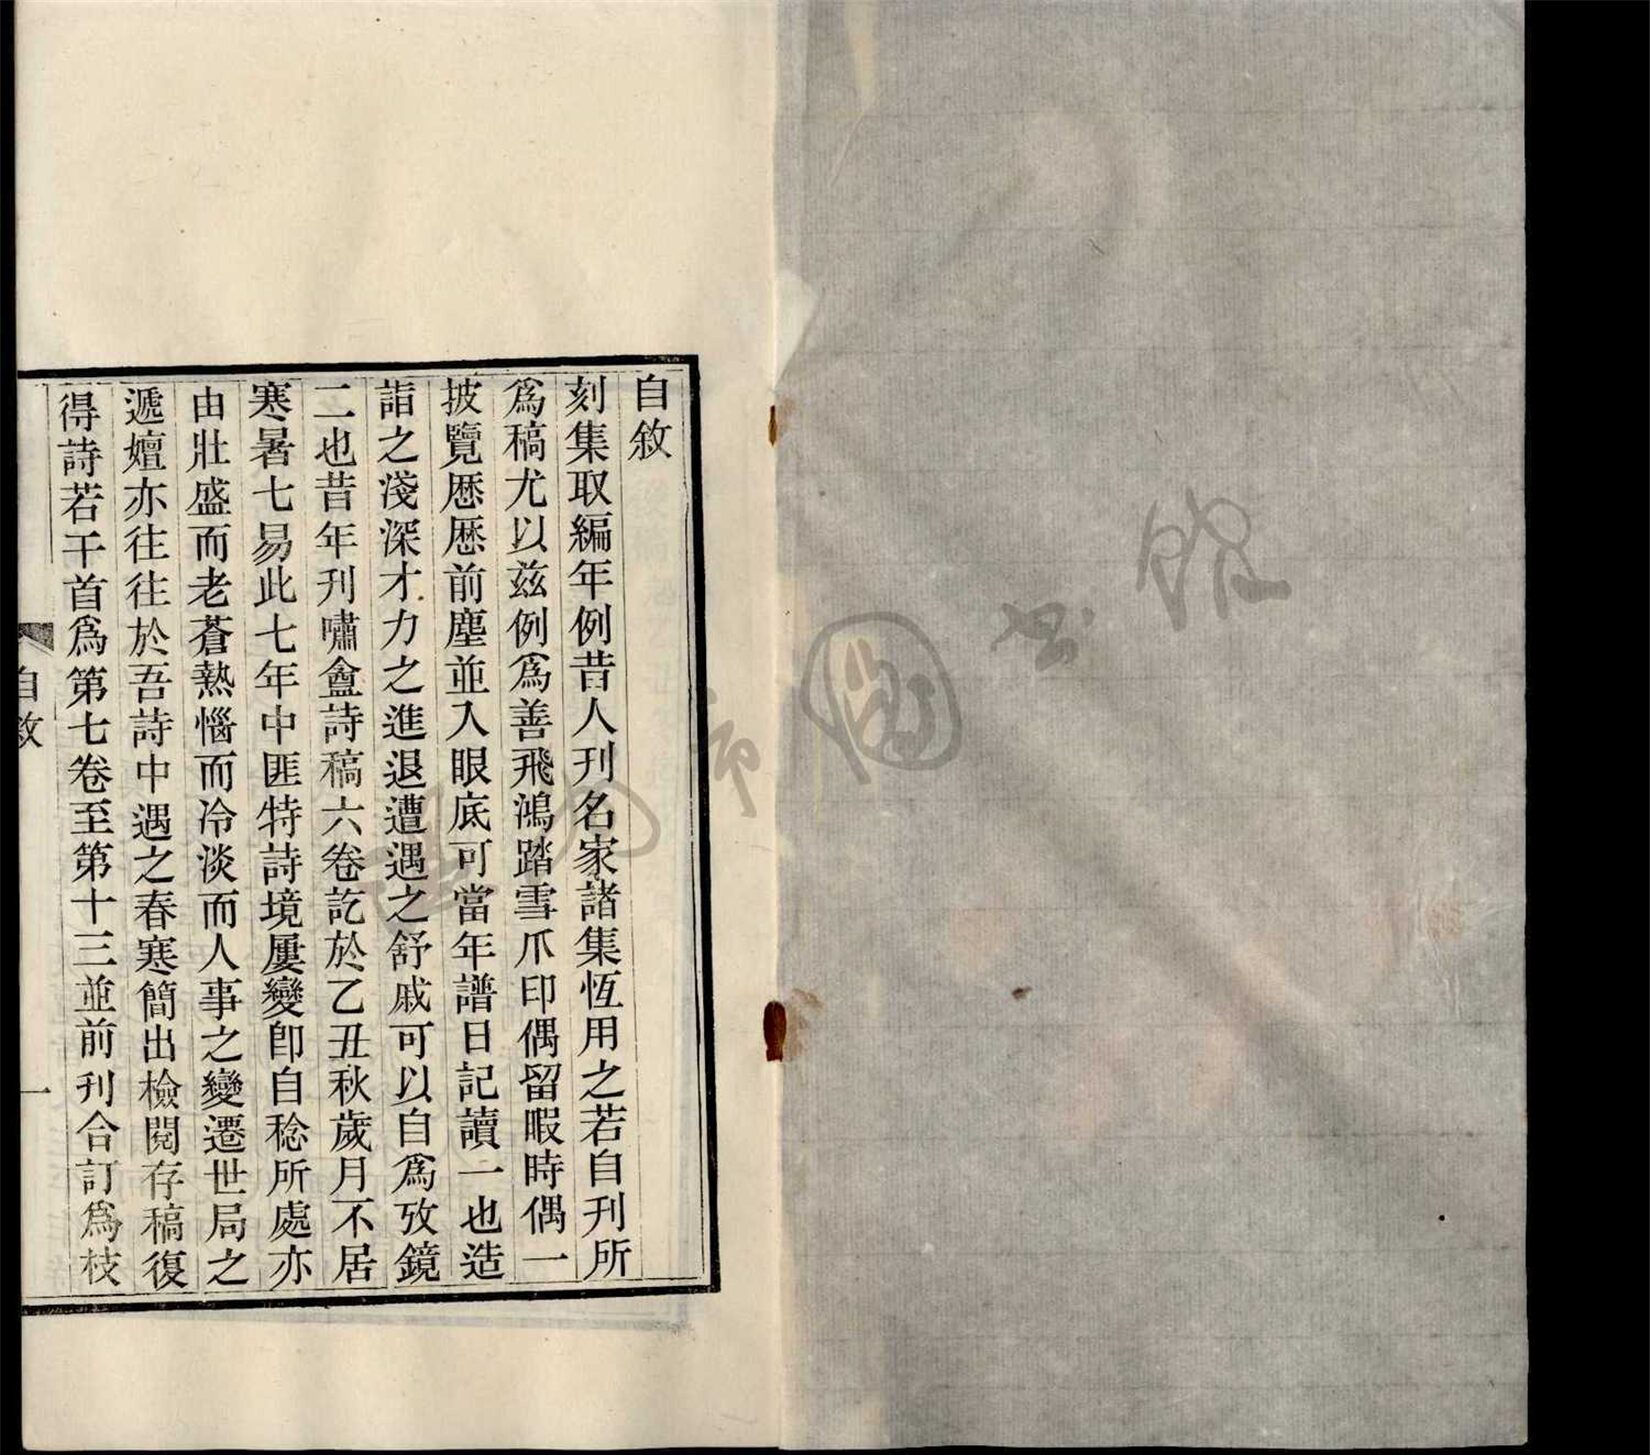 自敘
刻集取編年例昔人刊名家諸集恆用之若自刊所
爲稿尤以茲例爲善飛鴻踏雪爪印偶留暇時偶一
披覽歷歷前塵並入眼底可當年譜日記讀一也造
詣之淺深才力之進退遭遇之舒戚可以自爲攷鏡
二也昔年刊嘯盦詩稿六卷訖於乙丑秋歲月不居
寒暑七易此七年中匪特詩境屢變卽自稔所處亦
由壯盛而老蒼熱惱而冷淡而人事之變遷世局之
遞嬗亦往往於吾詩中遇之春寒簡出檢閱存稿復
得詩若干首爲第七卷至第十三並前刊合訂爲枝
自敘
一
市圖书館